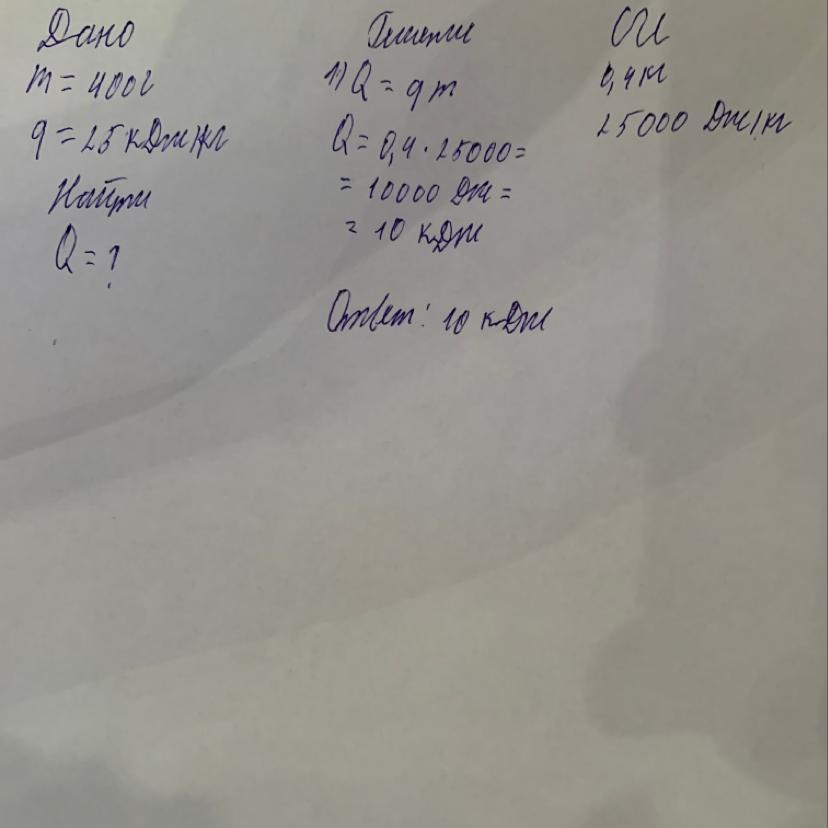 Дано
m = 400г
q = 25 кДж/кг
Найти
Q = ?
Решение
1) Q = qm
Q = 0,4 · 25000 =
= 10000 Дж =
= 10 кДж
Ответ: 10 кДж
СИ
0,4 кг
25000 Дж/кг